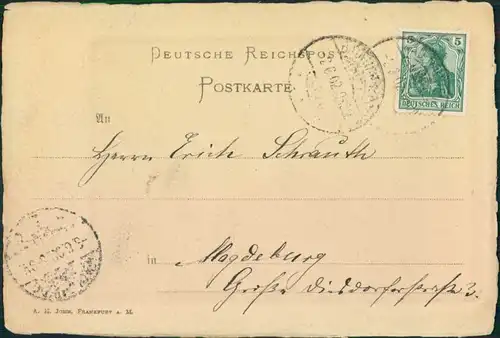 DEUTSCHE REICHSPOST
POSTKARTE
5 5
DEUTSCHES REICH
An
Herrn Erich Schrauth
in Magdeburg
Große Diesdorferstraße 3.
FRANKFURT A. M.